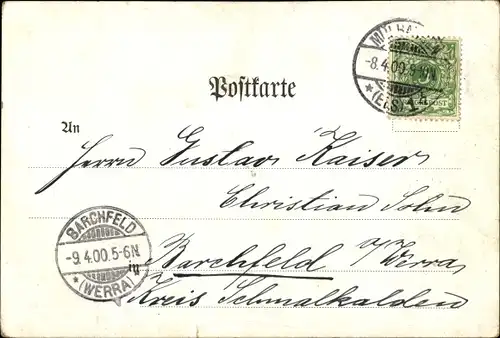 Postkarte
-8.4.00.
(ELS)
An
Herrn Gustav Kaiser
Christian Sohn
BARCHFELD
-9.4.00.5-6N.
*(WERRA)
in Barchfeld a/Werra
Kreis Schmalkalden